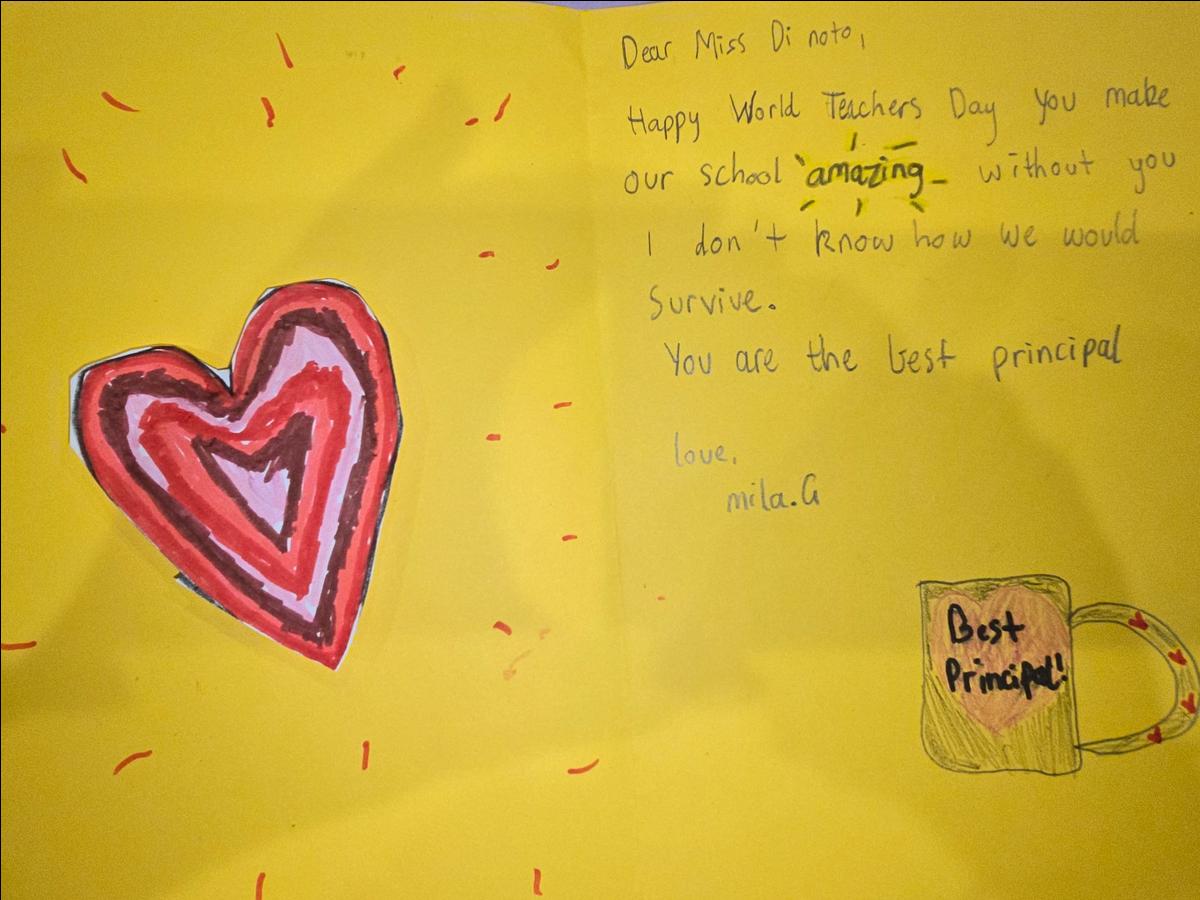 Dear Miss Di noto,
Happy World Teachers Day you make
our school amazing without you
I don't know how we would
Survive.
You are the best principal
love,
mila.G
Best
Principal!